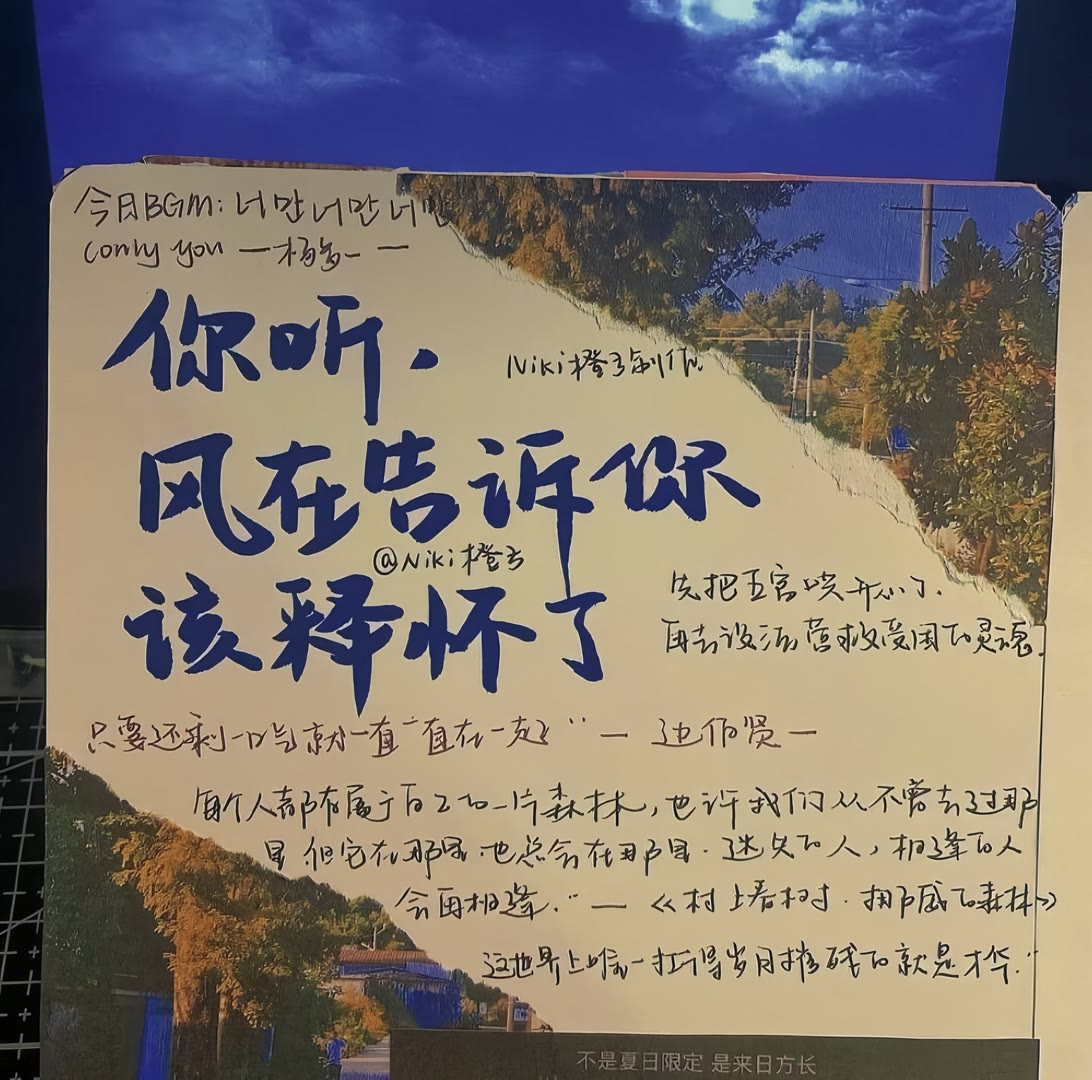 今日BGM: 너만 너만 너만
(only you 一杨多一 一
你听,
Niki橙子制作
风在告诉你
@Niki橙子
该释怀了
先把五官哄开心了.
再去设法营救受困的灵魂.
只要还剩一口气就一直一直在一起" 一 边伯贤一
每个人都有属于自己的一片森林, 也许我们从不曾去过那
里 但它在那里.也总会在那里. 迷失的人, 相逢的人
会再相逢." — 《村上春树.挪威的森林》
这世界上唯一扛得岁月摧残的就是才华."
不是夏日限定 是来日方长